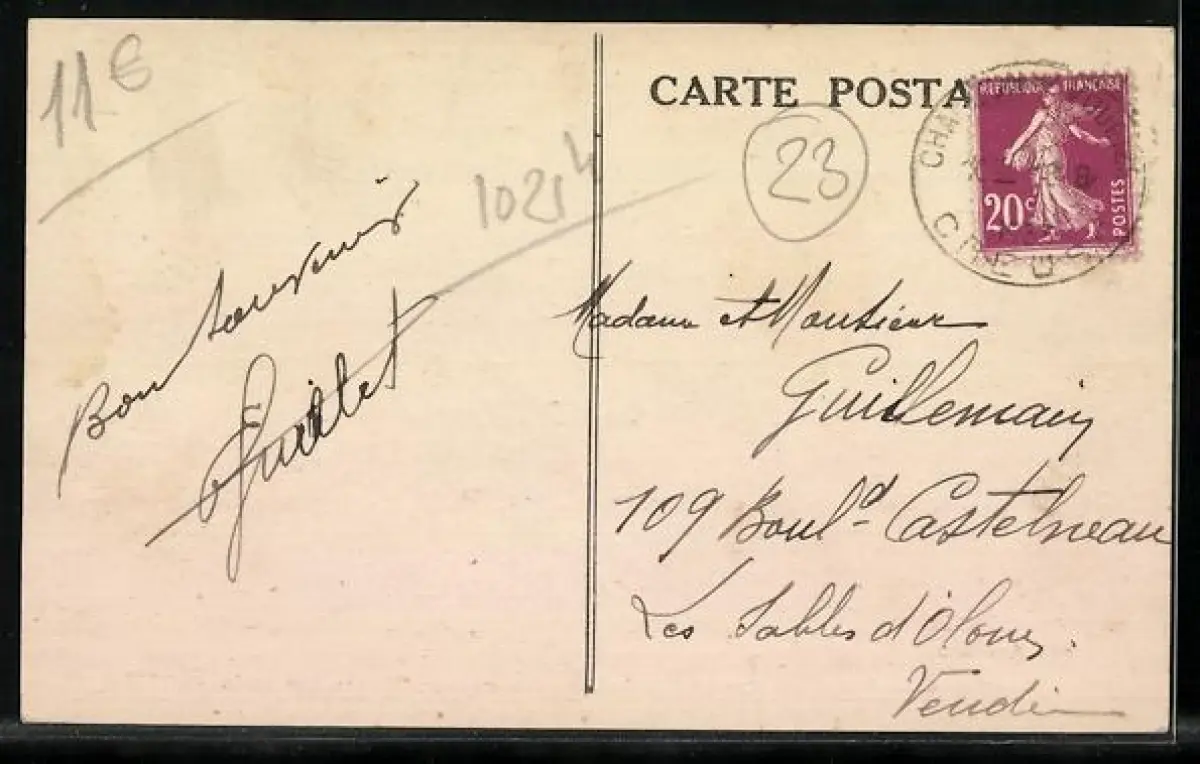 11 €
1021
Bon souvenir
Guillet
CARTE POSTA
23
REPUBLIQUE FRANÇAISE
20c
POSTES
CREUSE
Madame et Monsieur
Guillemain
109 Boul.d Castelneau
Les Sables d'Olonne
Vendée